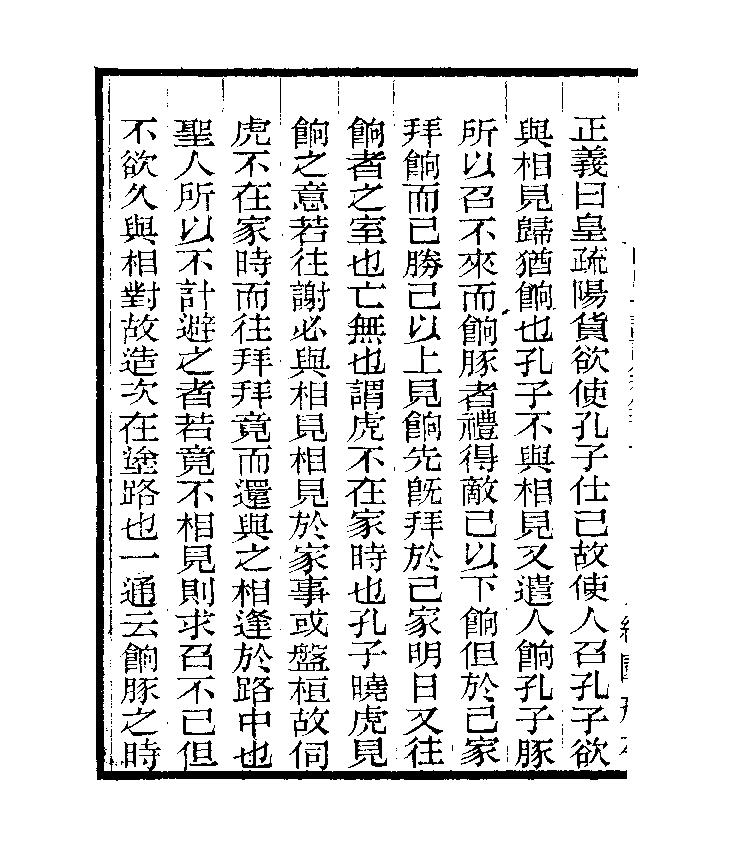 正義曰皇疏陽貨欲使孔子仕己故使人召孔子欲
與相見歸猶餉也孔子不與相見又遣人餉孔子豚
所以召不來而餉豚者禮得敵己以下餉但於己家
拜餉而已勝己以上見餉先既拜於己家明日又往
餉者之室也亡無也謂虎不在家時也孔子曉虎見
餉之意若往謝必與相見相見於家事或盤桓故伺
虎不在家時而往拜拜竟而還與之相逢於路中也
聖人所以不計避之者若竟不相見則求召不已但
不欲久與相對故造次在塗路也一通云餉豚之時